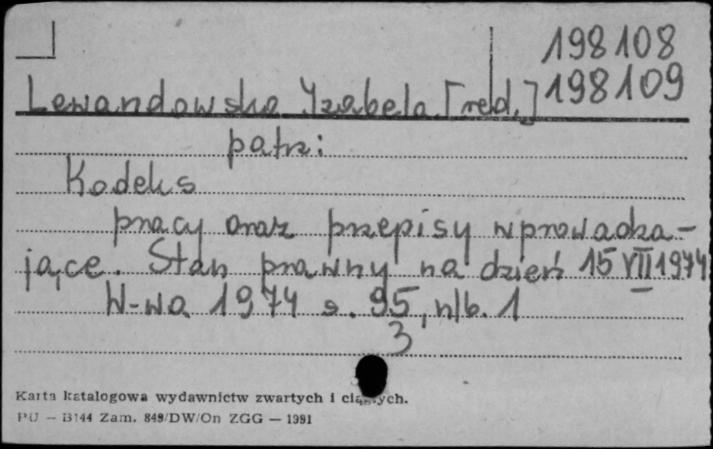 198108
Lewandowska Izabela [red.] 198109
patrz:
Kodeks
pracy oraz przepisy wprowadza-
jące. Stan prawny na dzień 15 VII 1974
W-wa 1974 s. 95, nlb. 1
3
Karta katalogowa wydawnictw zwartych i ciągłych.
PU — B144 Zam. 849/DW/On ZGG — 1991